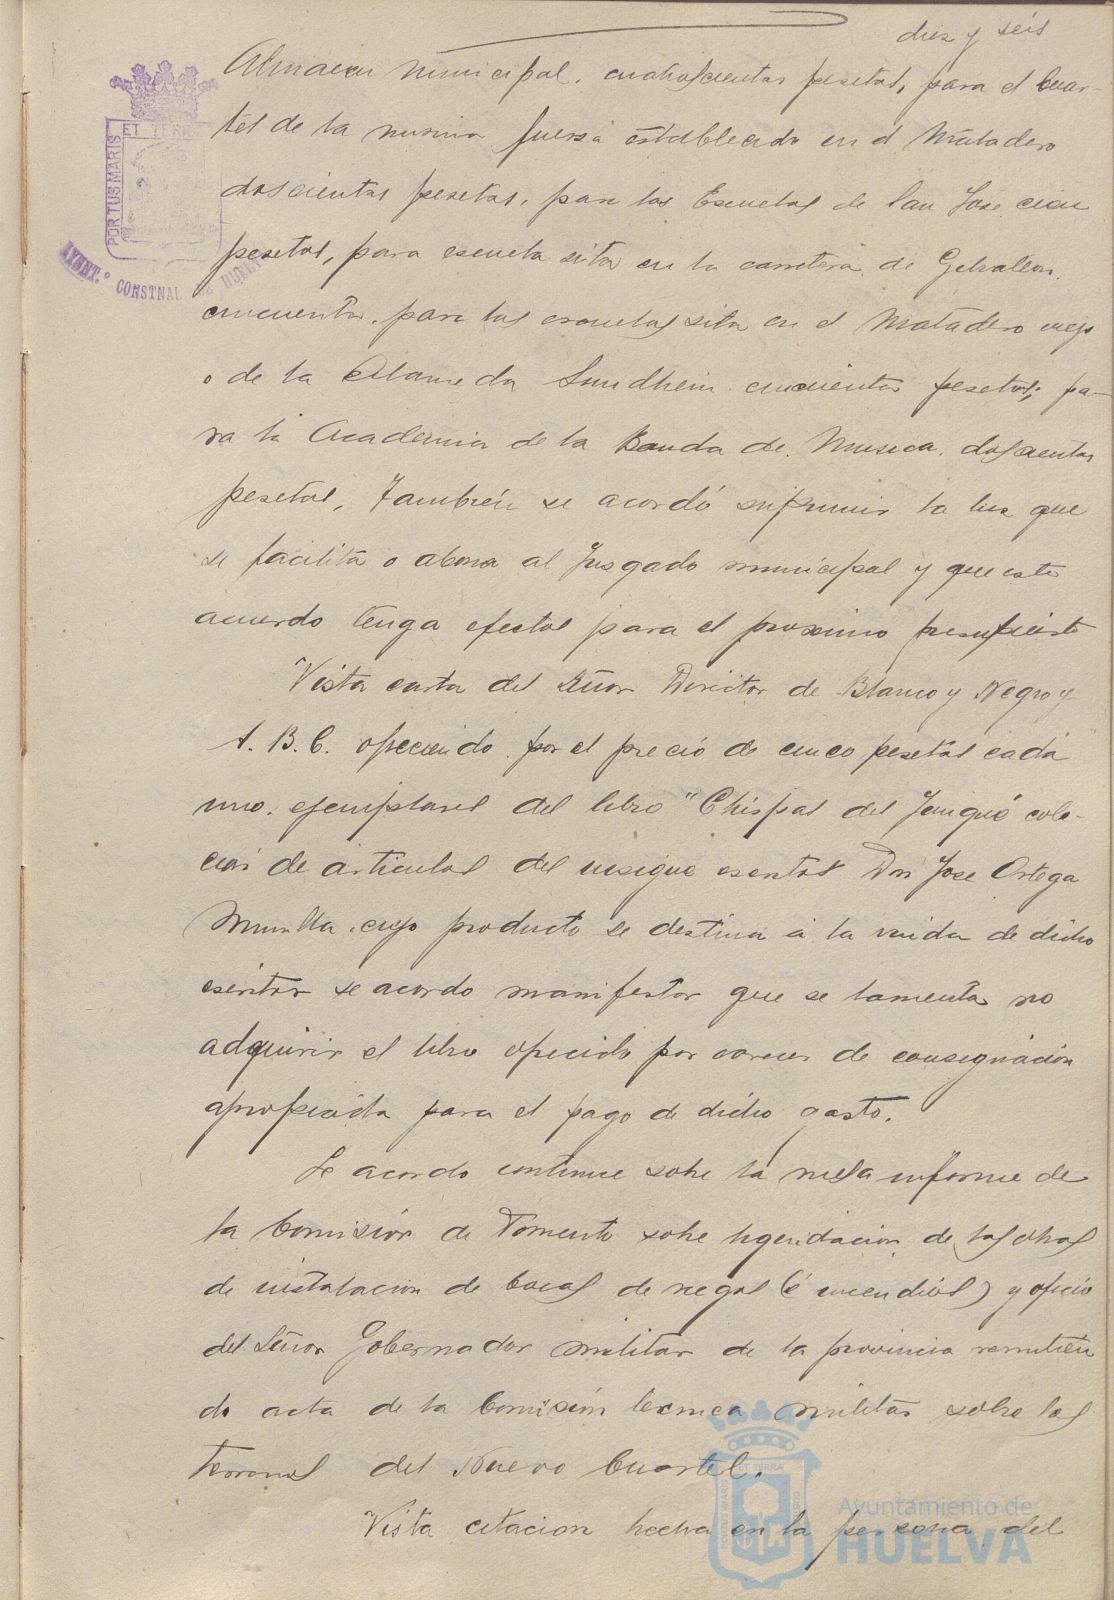 diez y seis
Almacen municipal, cuatrocientas pesetas, para el Cuar-
tel de la misma fuersa establecido en el Matadero
doscientas pesetas, para las Escuelas de San Jose cien
pesetas, para escuela sita en la carretera de Gibraleon
cincuenta, para las escuelas sita en el Matadero viejo
o de la Alameda Sundheim cincuenta pesetas, pa-
ra la Academia de la Banda de Musica, doscientas
pesetas, También se acordó suprimir la luz que
se facilita o abona al Jusgado municipal y que este
acuerdo tenga efectos para el proximo presupuesto
Vista carta del Señor Director de Blanco y Negro y
A. B. C. ofreciendo por el precio de cinco pesetas cada
uno, ejemplares del libro "Chispas del Yunque" cole-
ción de articulos del insigne escritor Don Jose Ortega
Munilla, cuyo producto se destina á la viuda de dicho
escritor se acordo manifestar que se lamenta no
adquirir el libro ofrecido por carecer de consignación
apropiada para el pago de dicho gasto.
Se acordo continue sobre la mesa informe de
la Comisión de Fomento sobre liquidación de las obras
de instalacion de bocas de riegos (é incendios) y oficio
del Señor Gobernador militar de la provincia remitien
do acta de la Comisión tecnica militar sobre los
terrenos del Nuevo Cuartel.
Vista citacion hecha en la persona del
PORTUS MARIS
ET TERRÆ
AYUNT.º CONSTNAL DE HUELVA
Ayuntamiento de
HUELVA